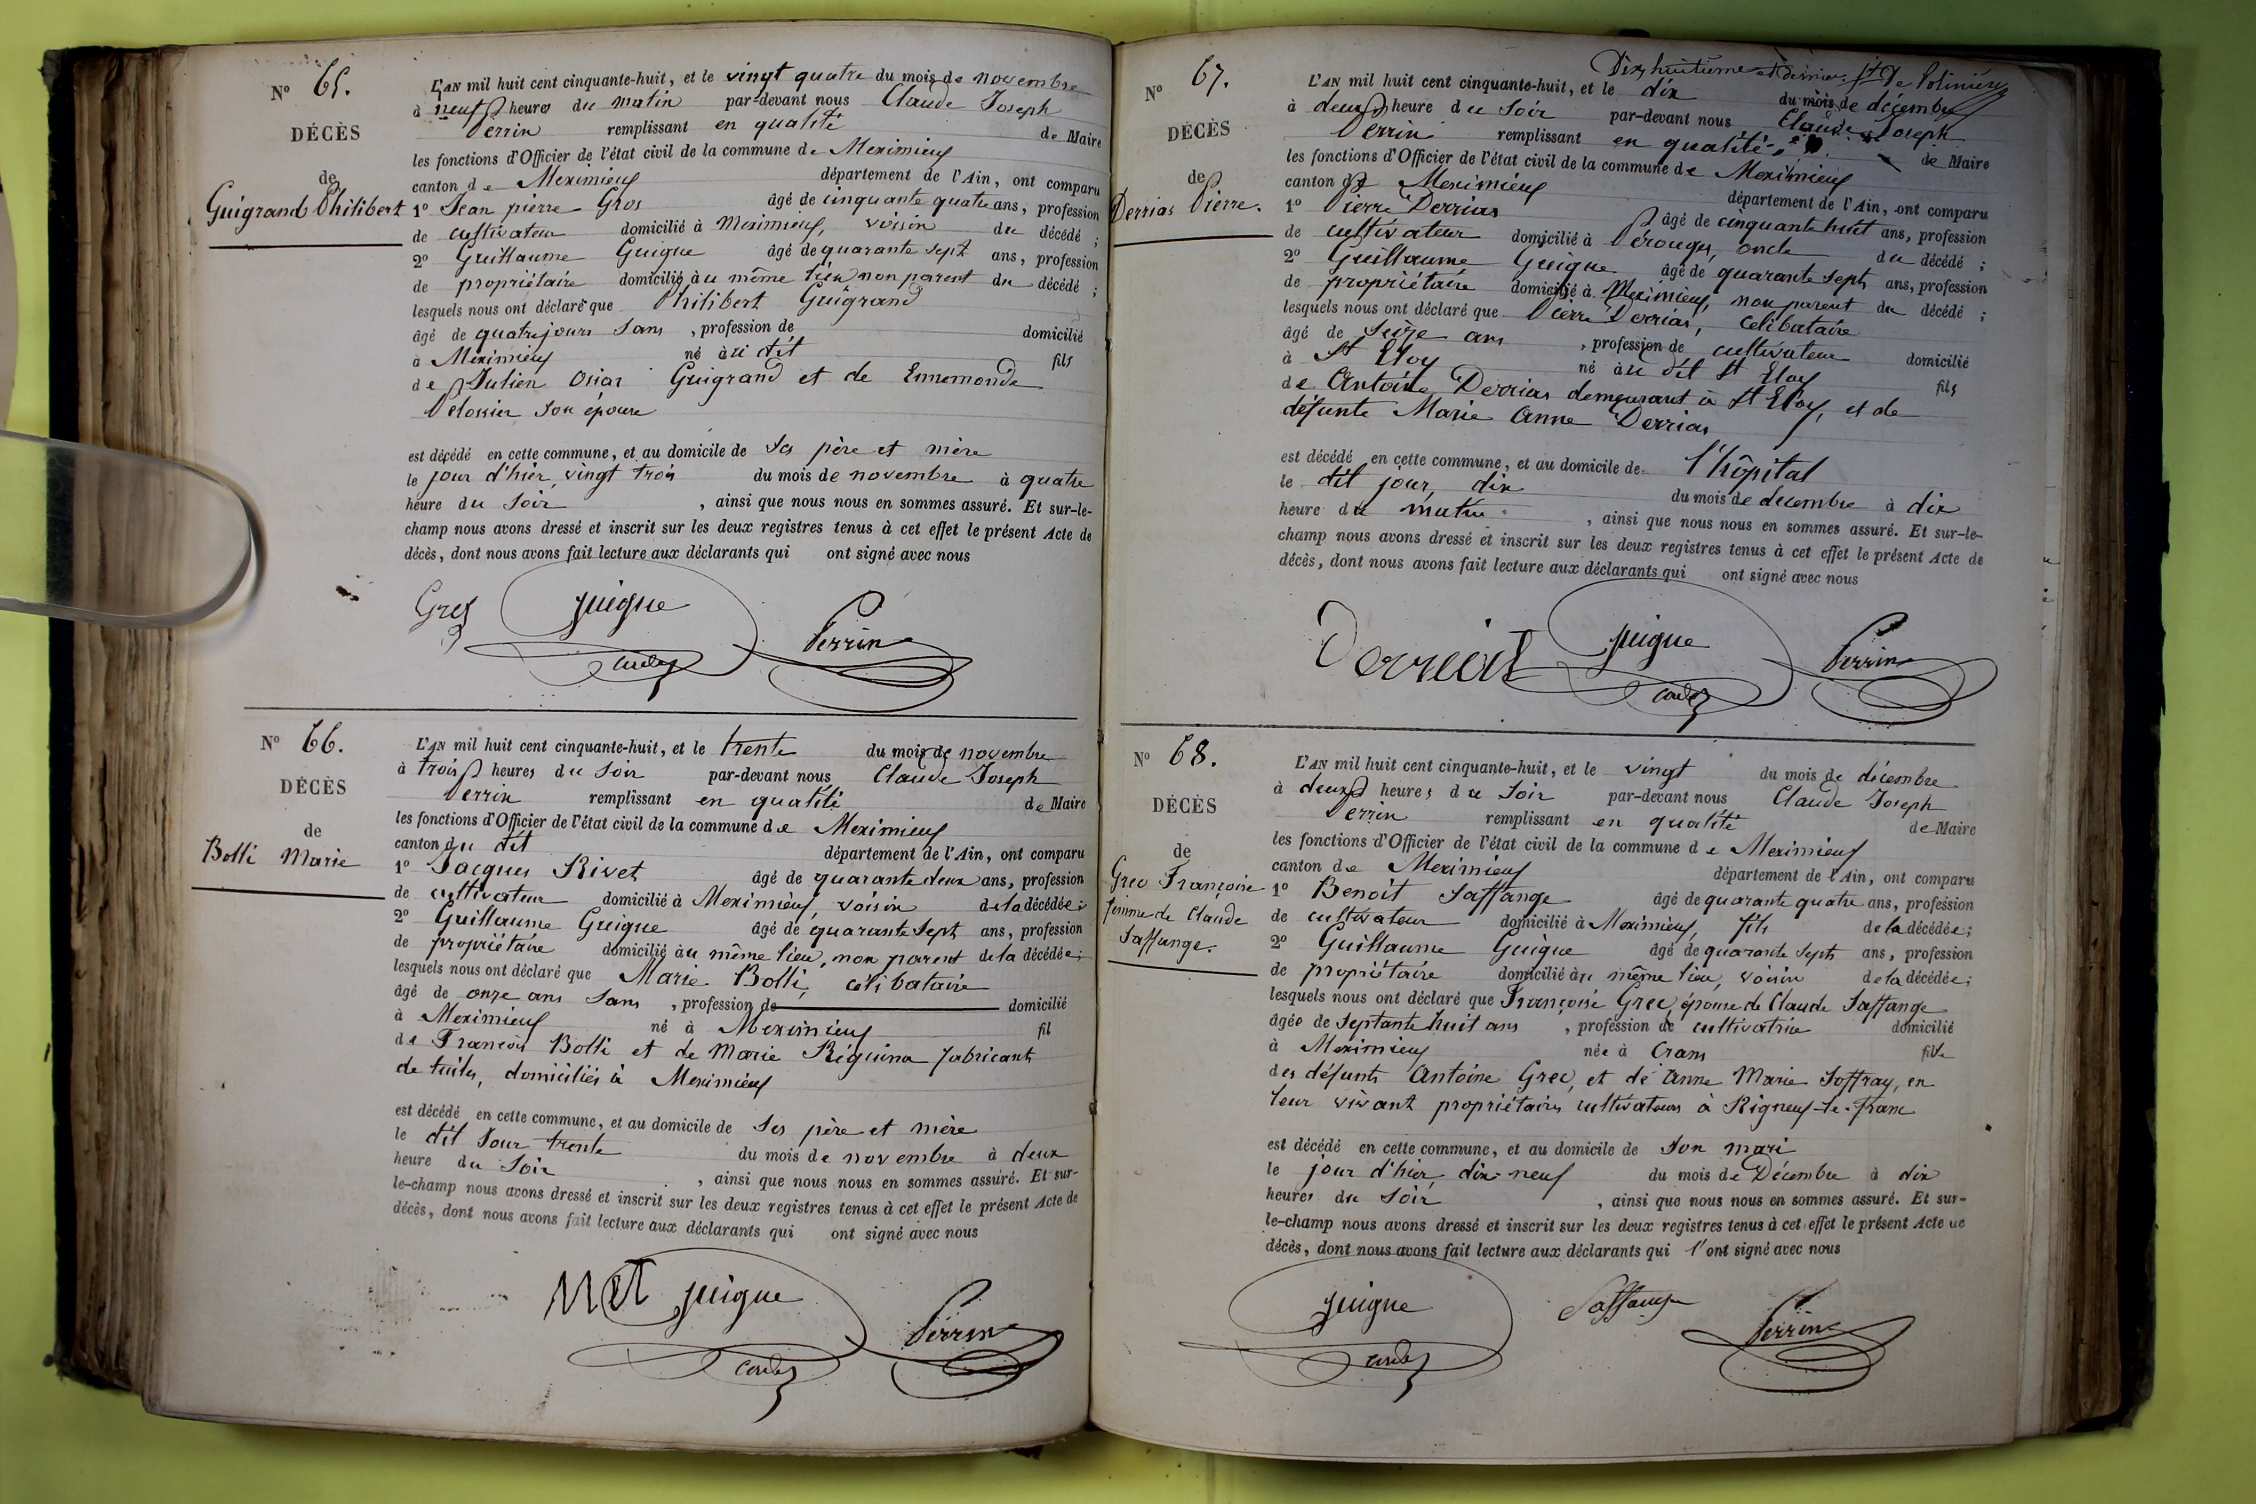 Nº 65.
DÉCÈS
de
Guigrand Philibert
L'AN mil huit cent cinquante-huit, et le vingt quatre du mois de novembre
à neuf heures du matin par-devant nous Claude Joseph
Perrin remplissant en qualité de Maire
les fonctions d'Officier de l'état civil de la commune de Meximieux
canton de Meximieux département de l'Ain, ont comparu
1º Jean pierre Gros âgé de cinquante quatre ans, profession
de cultivateur domicilié à Meximieux, voisin du décédé ;
2º Guillaume Guigue âgé de quarante sept ans, profession
de propriétaire domicilié au même lieu non parent du décédé ;
lesquels nous ont déclaré que Philibert Guigrand
âgé de quatre jours sans , profession de domicilié
à Meximieux né au dit fils
de Julien Guigrand et de Ennemonde
son épouse
est décédé en cette commune, et au domicile de ses père et mère
le jour d'hier, vingt trois du mois de novembre à quatre
heure du soir , ainsi que nous nous en sommes assuré. Et sur-le-
champ nous avons dressé et inscrit sur les deux registres tenus à cet effet le présent Acte de
décès, dont nous avons fait lecture aux déclarants qui ont signé avec nous
Gros Guigue Perrin
Nº 66.
DÉCÈS
de
Bolli Marie
L'AN mil huit cent cinquante-huit, et le trente du mois de novembre
à trois heures du soir par-devant nous Claude Joseph
Perrin remplissant en qualité de Maire
les fonctions d'Officier de l'état civil de la commune de Meximieux
canton du dit département de l'Ain, ont comparu
1º Jacques Rivet âgé de quarante deux ans, profession
de cultivateur domicilié à Meximieux, voisin de la décédée ;
2º Guillaume Guigue âgé de quarante sept ans, profession
de propriétaire domicilié au même lieu, non parent de la décédée ;
lesquels nous ont déclaré que Marie Bolli, célibataire
âgé de onze ans sans , profession de domicilié
à Meximieux né à Meximieux fil
de François Bolli et de Marie Réquina fabricants
de tuiles, domiciliés à Meximieux
est décédé en cette commune, et au domicile de ses père et mère
le dit Jour trente du mois de novembre à deux
heure du soir , ainsi que nous nous en sommes assuré. Et sur-
le-champ nous avons dressé et inscrit sur les deux registres tenus à cet effet le présent Acte de
décès, dont nous avons fait lecture aux déclarants qui ont signé avec nous
Guigue Perrin
Dix huitième et dernier
Nº 67.
DÉCÈS
de
Derrias Pierre.
L'AN mil huit cent cinquante-huit, et le dix du mois de décembre
à deux heure du soir par-devant nous Claude Joseph
Perrin remplissant en qualité de Maire
les fonctions d'Officier de l'état civil de la commune de Meximieux
canton de Meximieux département de l'Ain, ont comparu
1º Pierre Derrias âgé de cinquante huit ans, profession
de cultivateur domicilié à Pérouges, oncle du décédé ;
2º Guillaume Guigue âgé de quarante sept ans, profession
de propriétaire domicilié à Meximieux, non parent du décédé ;
lesquels nous ont déclaré que Pierre Derrias, célibataire
âgé de seize ans , profession de cultivateur domicilié
à St Eloy né au dit St Eloy fils
de Antoine Derrias demeurant à St Eloy, et de
défunte Marie Anne Derrias
est décédé en cette commune, et au domicile de l'hôpital
le dit jour, dix du mois de décembre à dix
heure du matin , ainsi que nous nous en sommes assuré. Et sur-le-
champ nous avons dressé et inscrit sur les deux registres tenus à cet effet le présent Acte de
décès, dont nous avons fait lecture aux déclarants qui ont signé avec nous
Guigue Perrin
Nº 68.
DÉCÈS
de
Grec Françoise
femme de Claude
Saffange.
L'AN mil huit cent cinquante-huit, et le vingt du mois de décembre
à deux heures du soir par-devant nous Claude Joseph
Perrin remplissant en qualité de Maire
les fonctions d'Officier de l'état civil de la commune de Meximieux
canton de Meximieux département de l'Ain, ont comparu
1º Benoit Saffange âgé de quarante quatre ans, profession
de cultivateur domicilié à Meximieux, fils de la décédée ;
2º Guillaume Guigue âgé de quarante sept ans, profession
de propriétaire domicilié au même lieu, voisin de la décédée ;
lesquels nous ont déclaré que Françoise Grec, épouse de Claude Saffange
âgée de septante huit ans , profession de cultivatrice domicilié
à Meximieux née à Crans fille
des défunts Antoine Grec, et de Anne Marie Joffray, en
leur vivant propriétaires cultivateurs à Rigneux-le-franc
est décédé en cette commune, et au domicile de son mari
le jour d'hier dix neuf du mois de Décembre à dix
heures du soir , ainsi que nous nous en sommes assuré. Et sur-
le-champ nous avons dressé et inscrit sur les deux registres tenus à cet effet le présent Acte de
décès, dont nous avons fait lecture aux déclarants qui l'ont signé avec nous
Guigue Saffange Perrin